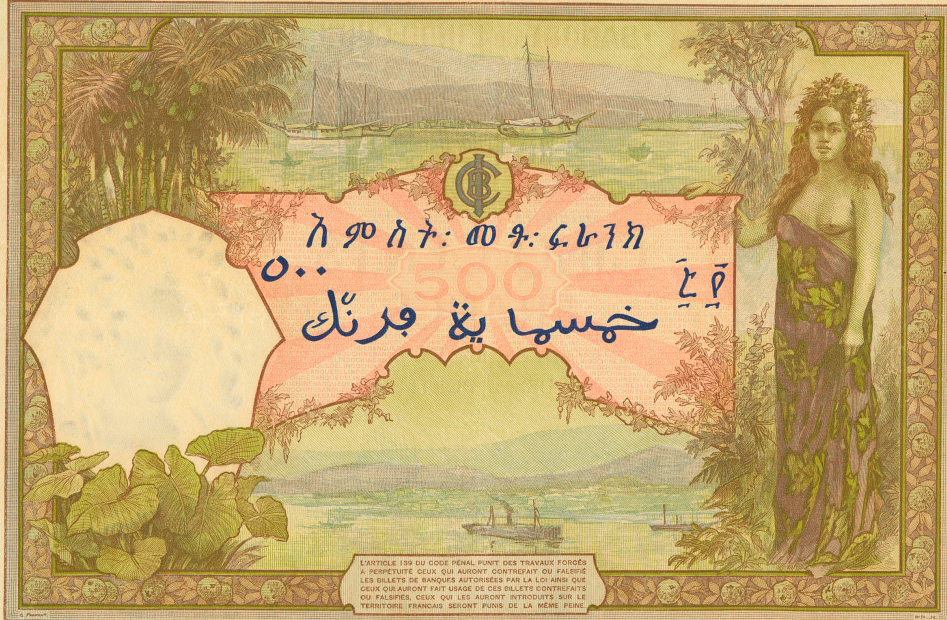 አምስት፡ መቶ፡ ፍራንክ
٥٠٠
፭፻
500
خمسماية فرنك
L'ARTICLE 139 DU CODE PÉNAL PUNIT DES TRAVAUX FORCÉS
A PERPÉTUITÉ CEUX QUI AURONT CONTREFAIT OU FALSIFIÉ
LES BILLETS DE BANQUES AUTORISÉES PAR LA LOI AINSI QUE
CEUX QUI AURONT FAIT USAGE DE CES BILLETS CONTREFAITS
OU FALSIFIÉS, CEUX QUI LES AURONT INTRODUITS SUR LE
TERRITOIRE FRANÇAIS SERONT PUNIS DE LA MÊME PEINE.